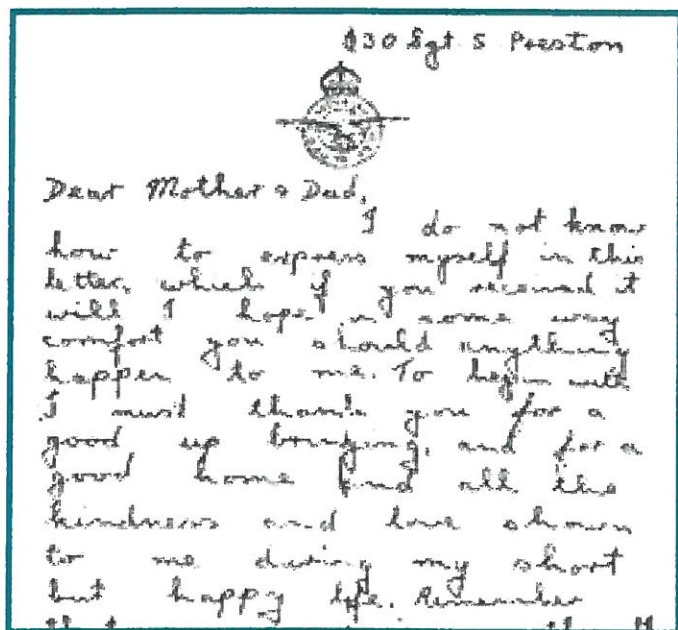 30 Sgt S Preston
Dear Mother & Dad,
I do not know
how to express myself in this
letter, which if you received it
will I hope in some way
comfort you should anything
happen to me. To begin with
I must thank you for a
good up bringing, and for a
good home and all the
kindness and love shown
to me during my short
but happy life. Remember
that